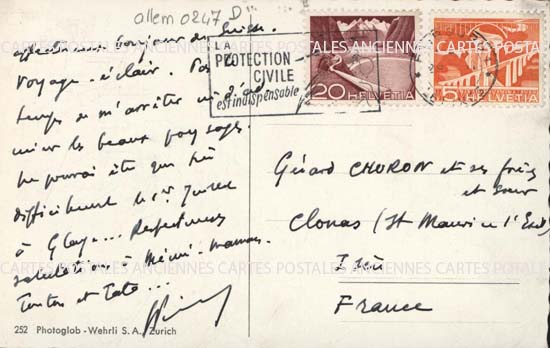 ollem 0247 D
bonjour de Suisse.
Voyage-éclair. Pas
temps de m'arrêter ni d'ad
mirer les beaux paysages.
ne pourrai être que
difficilement le 1er Juillet
à Glay... Respectueuses
salutations à Mémé-maman.
Tonton et Tata...
252 Photoglob-Wehrli S. A., Zurich
LA
PROTECTION
CIVILE
est indispensable
20 HELVETIA
5 HELVETIA
Gérard CHORON et ses frères
et sœur
Clonas (St Maurice l'Exil)
Isère
France
CARTES POSTALES ANCIENNES CARTES POSTALES ANCIENNES